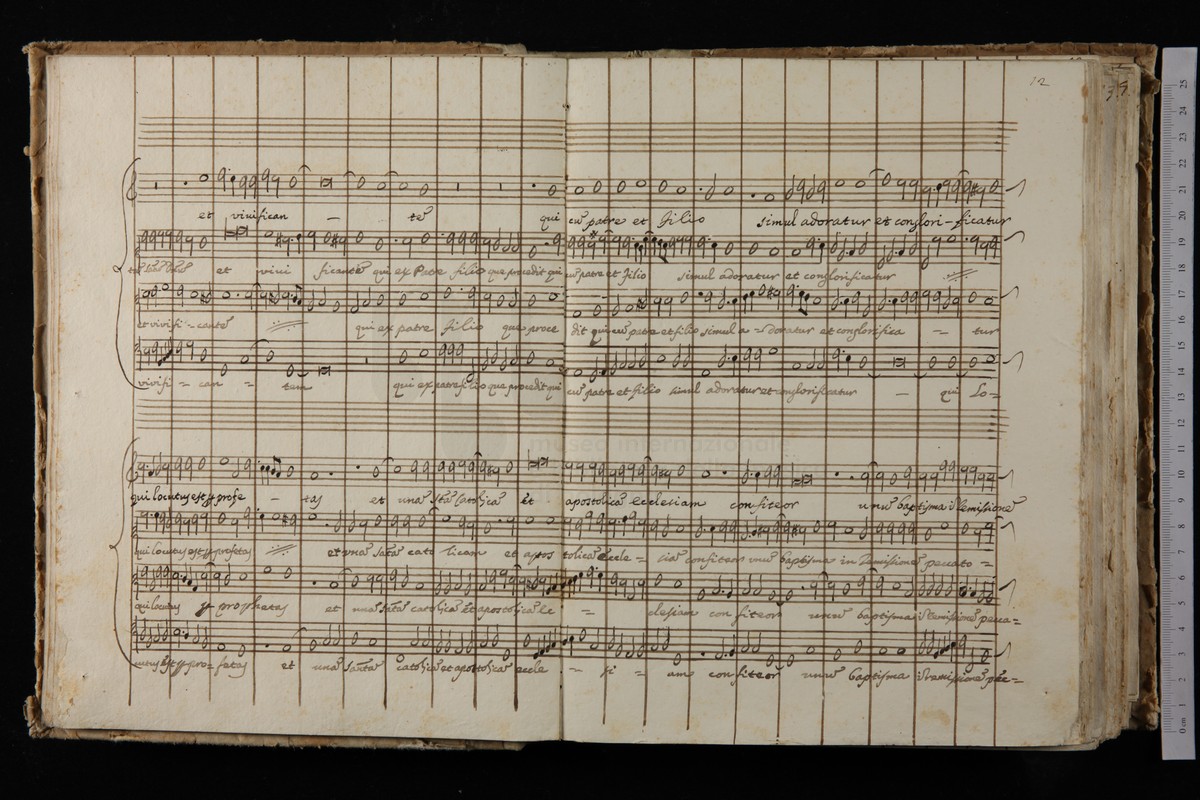 12
et vivifican – te qui cu patre et filio simul adoratur et conglori-ficatur
et vivi ficante qui ex Patre filio que procedit qui cu patre et filio simul adoratur et conglorificatur
et vivifi-cante qui ex patre filio que proce dit qui cu patre et filio simul a-doratur et conglorifica – tur
vivifi = can = tem qui ex patre filio que procedit qui cu patre et filio simul adoratur et conglorificatur – qui Lo=
museo internazionale
qui locutus est p profe – tas et una sta catolica et apostolica ecclesiam confiteor unu baptisma i remissione
qui locutus est p profetas et una sata cato licam et apos tolica eccle = sia confiteor unu baptisma in remissione peccato =
qui locutus p prophetas et una sata catolica et apostolica ec = clesiam con fiteor unu baptisma i remissione pecca=
cutus est p pro=fetas et una santa catolica et apostolica eccle = si = am con fiteor unu baptisma i remissione pec=